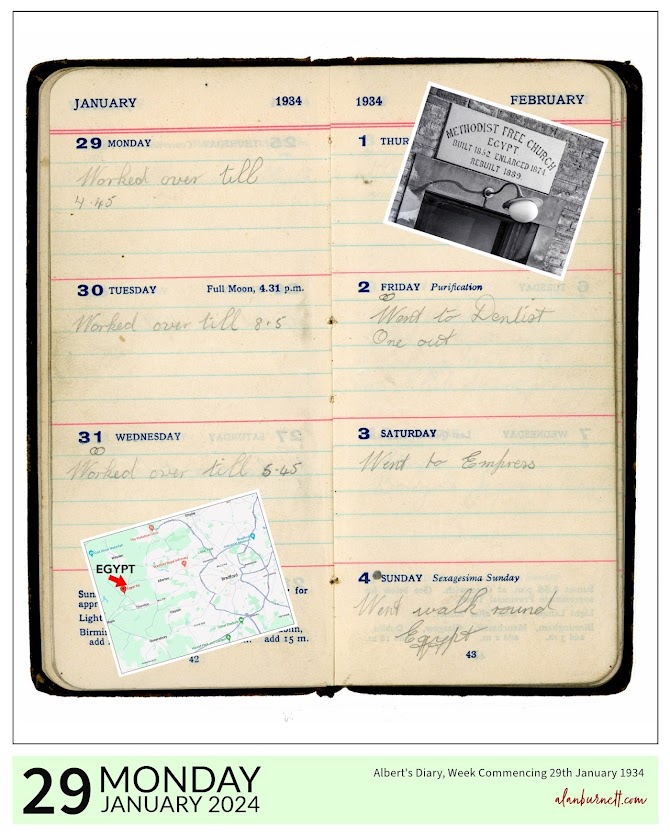 JANUARY 1934
29 MONDAY
Worked over till
4.45
30 TUESDAY Full Moon, 4.31 p.m.
Worked over till 8.5
31 WEDNESDAY
Worked over till 5.45
EGYPT
Bradford
Sun
appr
for
Light
Birmin
add
add 15 m.
42
1934 FEBRUARY
1 THUR
METHODIST FREE CHURCH
EGYPT
BUILT 1852 ENLARGED 1871
REBUILT 1889
2 FRIDAY Purification
Went to Dentist
One out
3 SATURDAY
Went to Empress
4 SUNDAY Sexagesima Sunday
Went walk round
Egypt
43
29 MONDAY
JANUARY 2024
Albert's Diary, Week Commencing 29th January 1934
alanburnett.com